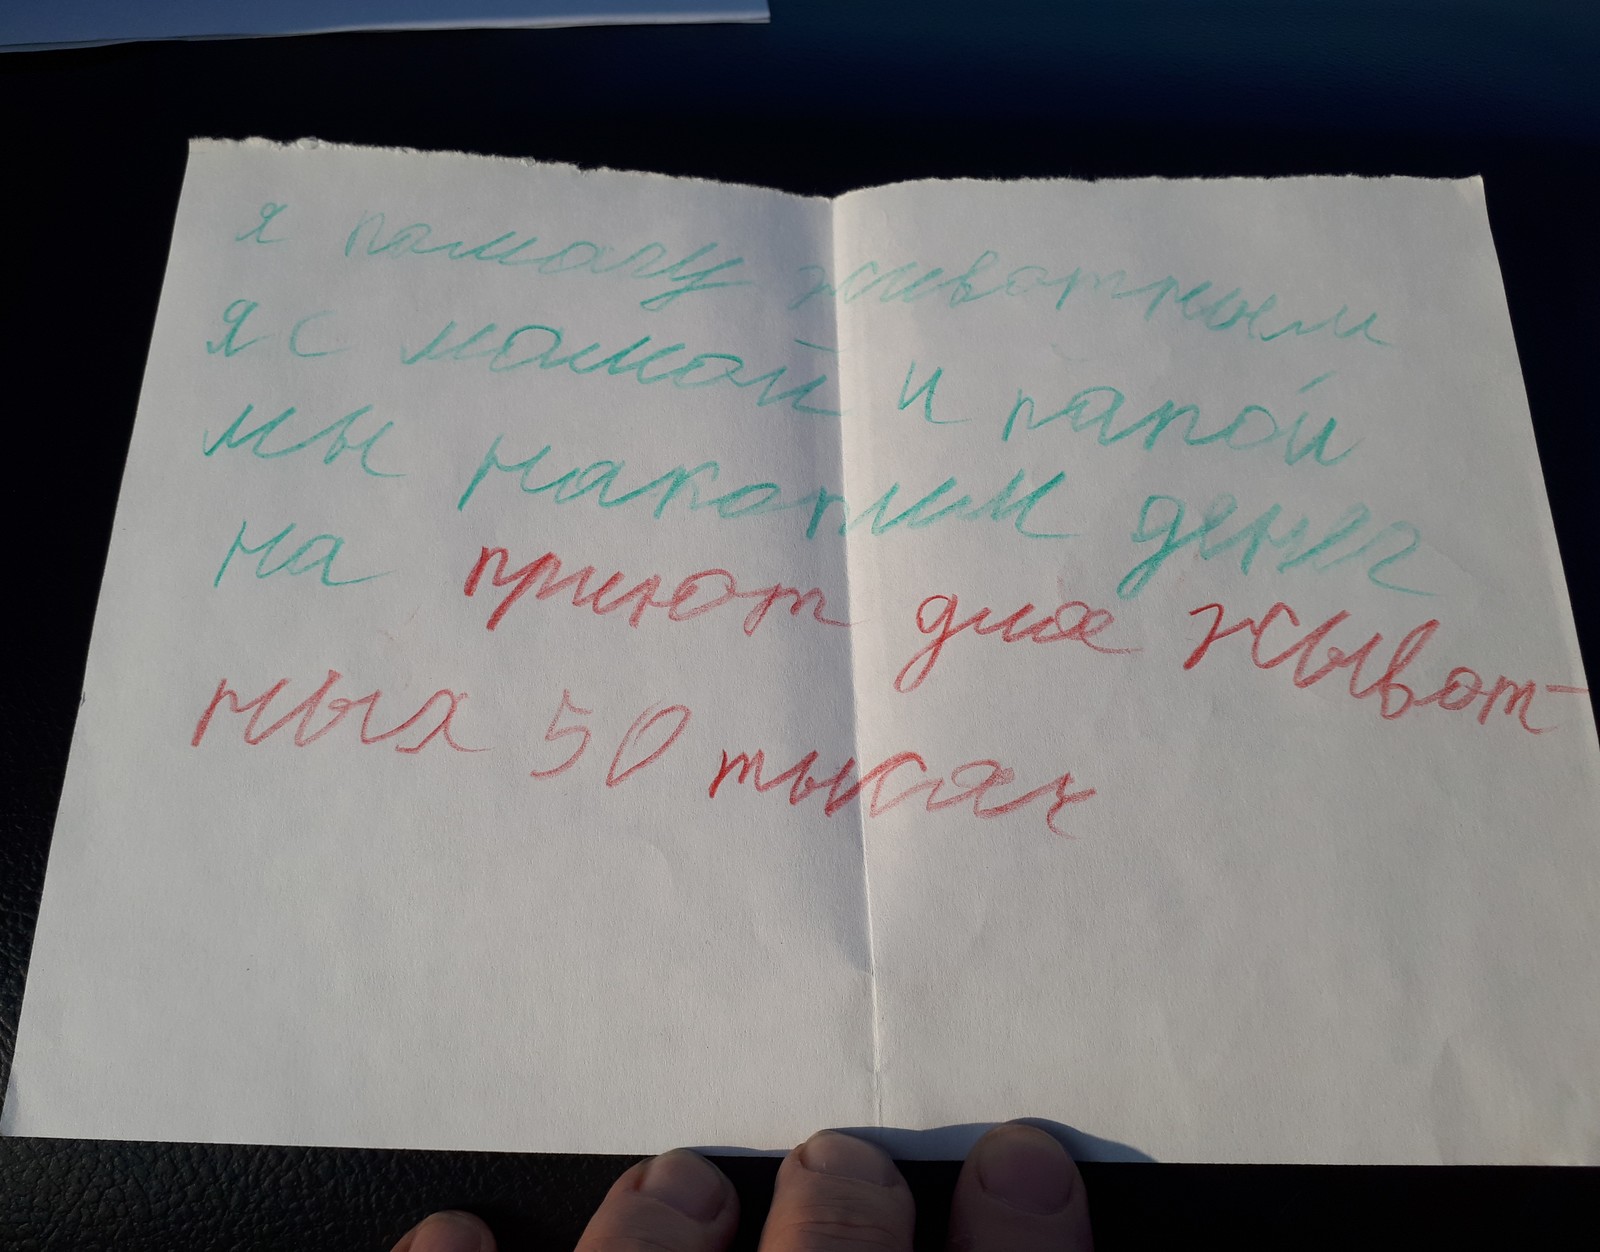 я памагу животным
я с мамой и папой
мы накопим денег
на приют для жывот-
ных 50 тысяч